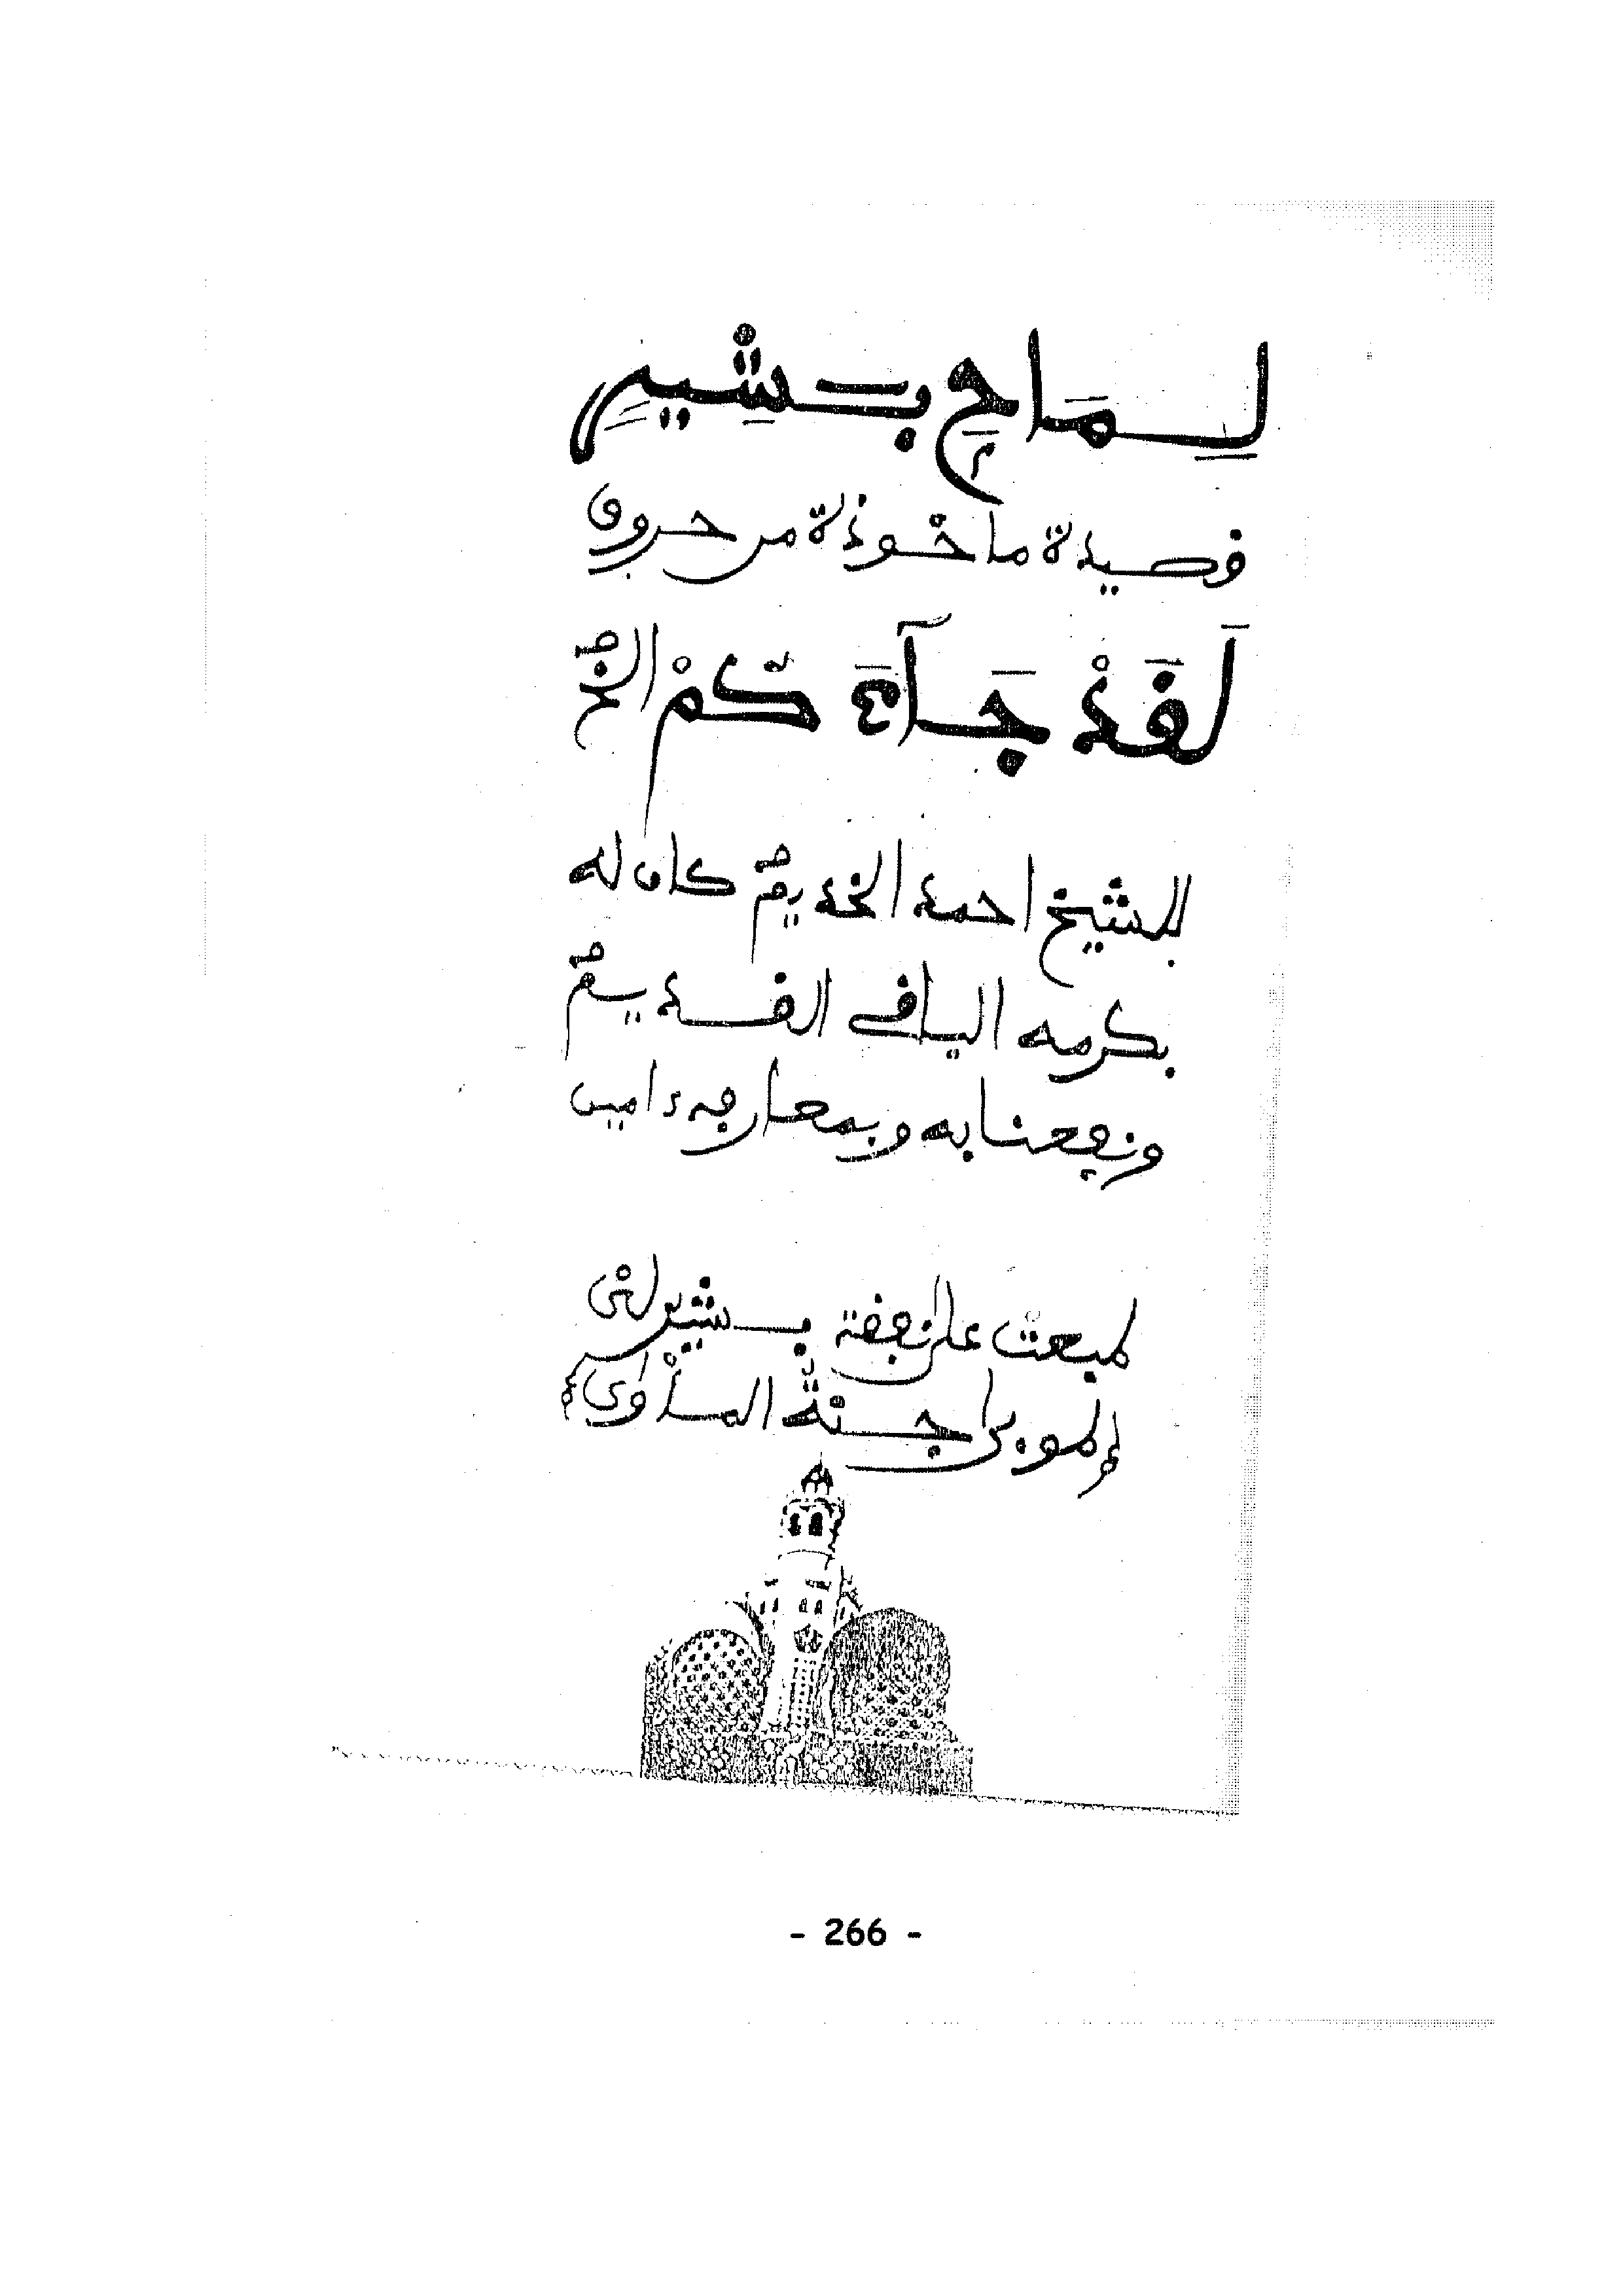 لِمَاحٍ بَشِيرٍ
قصيدة ماخوذة من حروف
لَقَدْ جَآءَ كُمْ الخ
للشيخ احمد الخديم كان له
بكرمه الباقي القديم
ونفعنا به وبمعارفه ءامين
طبعت على نفقة بشير لتى
جنة المأوى
- 266 -